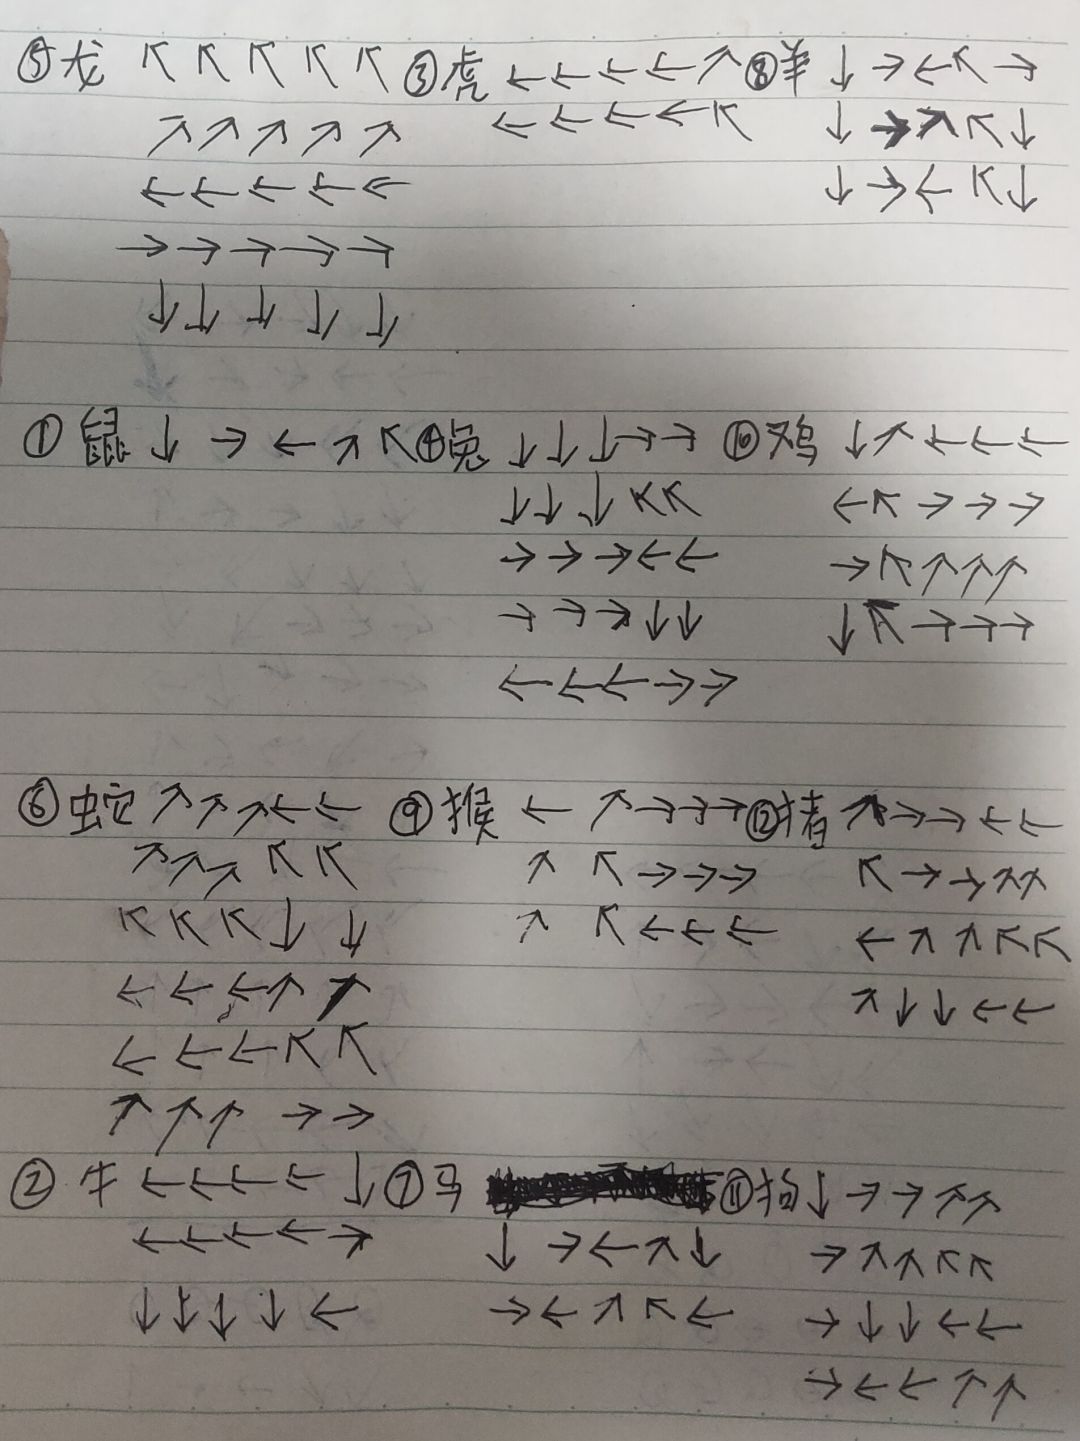 ⑤龙 ↖ ↖ ↖ ↖ ↖
↗ ↗ ↗ ↗ ↗
← ← ← ← ←
→ → → → →
↓ ↓ ↓ ↓ ↓
③虎 ← ← ← ← ↗
← ← ← ← ↖
⑧羊 ↓ → ← ↖ →
↓ → ↗ ↖ ↓
↓ → ← ↖ ↓
①鼠 ↓ → ← ↗ ↖
④兔 ↓ ↓ ↓ → →
↓ ↓ ↓ ↖ ↖
→ → → ← ←
→ → → ↓ ↓
← ← ← → →
⑩鸡 ↓ ↗ ← ← ←
← ↖ → → →
→ ↖ ↗ ↗ ↗
↓ ↖ → → →
⑥蛇 ↗ ↗ ↗ ← ←
↗ ↗ ↗ ↖ ↖
↖ ↖ ↖ ↓ ↓
← ← ← ↗ ↗
← ← ← ↖ ↖
↗ ↗ ↗ → →
⑨猴 ← ↗ → → →
↗ ↖ → → →
↗ ↖ ← ← ←
⑫猪 ↗ → → ← ←
↖ → → ↗ ↗
← ↗ ↗ ↖ ↖
↗ ↓ ↓ ← ←
②牛 ← ← ← ← ↓
← ← ← ← →
↓ ↓ ↓ ↓ ←
⑦马
↓ → ← ↗ ↓
→ ← ↗ ↖ ←
⑪狗 ↓ → → ↗ ↗
→ ↗ ↗ ↖ ↖
→ ↓ ↓ ← ←
→ ← ← ↗ ↗